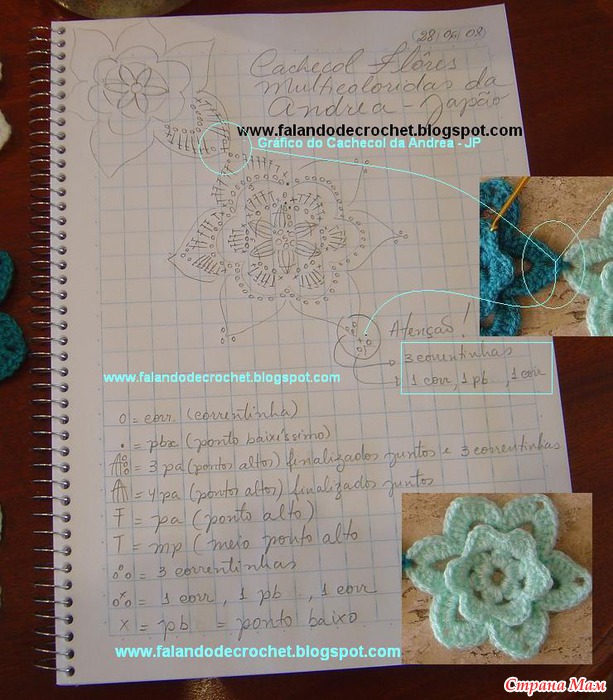 (28/06/08)
Cachecol Flôres
Multicoloridas da
Andrea - Japão
www.falandodecrochet.blogspot.com
Gráfico do Cachecol da Andrea - JP
Atenção!
3 correntinhas
1 corr, 1 pb, 1 corr
www.falandodecrochet.blogspot.com
o = corr. (correntinha)
. = pbx (ponto baixíssimo)
= 3 pa (pontos altos) finalizados juntos e 3 correntinhas
= 4 pa (pontos altos) finalizados juntos
= pa (ponto alto)
T = mp (meio ponto alto
= 3 correntinhas
= 1 corr, 1 pb, 1 corr
x = pb = ponto baixo
www.falandodecrochet.blogspot.com
Страна Мам